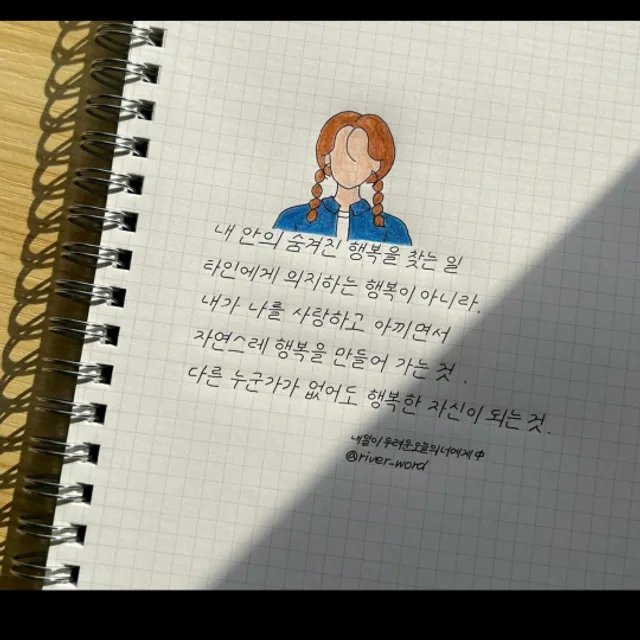 내 안의 숨겨진 행복을 찾는 일
타인에게 의지하는 행복이 아니라.
내가 나를 사랑하고 아끼면서
자연스레 행복을 만들어 가는 것.
다른 누군가가 없어도 행복한 자신이 되는 것.
내일이 두려운 오늘의 너에게 中
@river-word